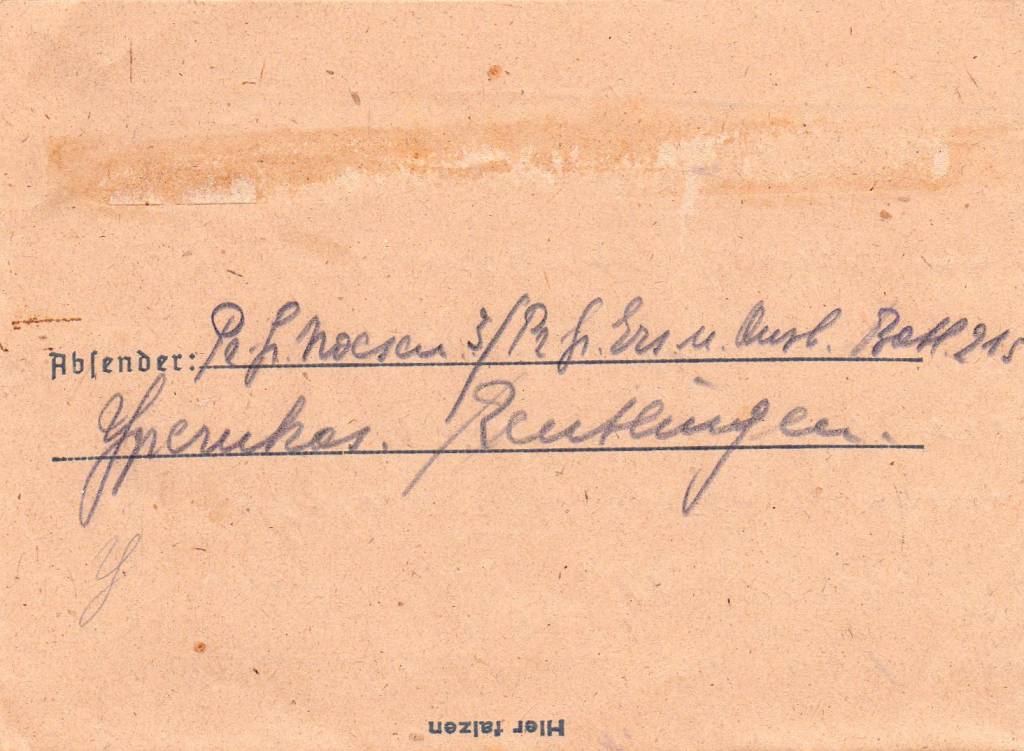 Absender: Pz. Gr. Noesen 3/Pz Gr. Ers. u. Ausb. Batl. 215
Ypernkas. Reutlingen.
Y
Hier falzen